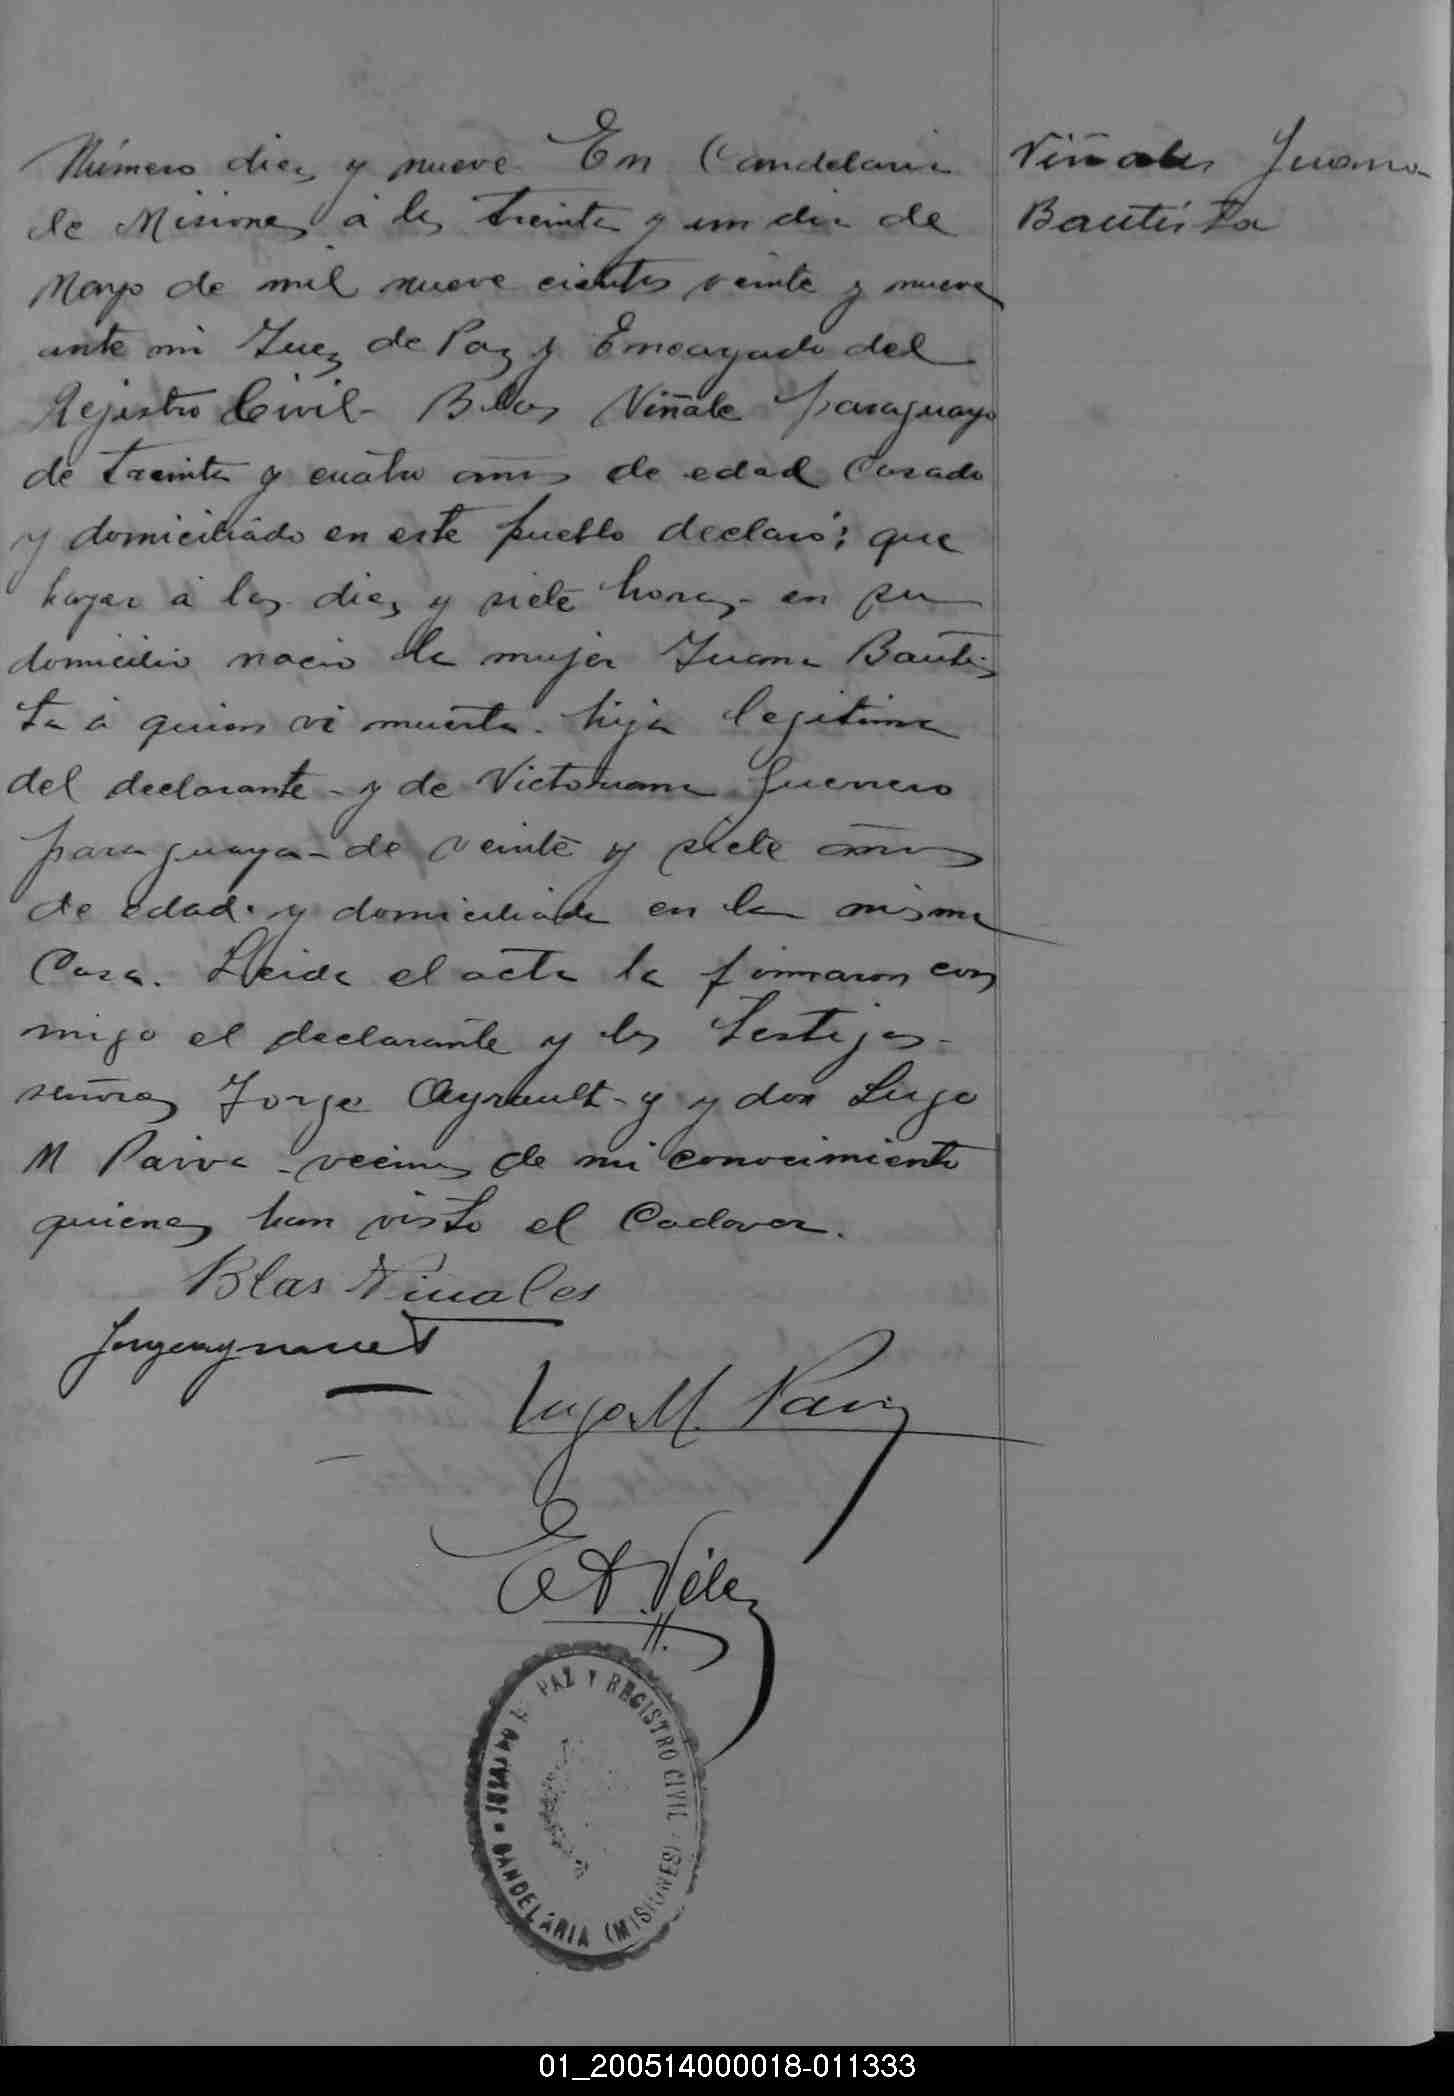 Número diez y nueve En Candelaria
de Misiones á los treinta y un dia de
Mayo de mil nueve cientos veinte y nueve
ante mi Juez de Paz y Encargado del
Rejistro Civil Blas Viñale paraguayo
de treinta y cuatro años de edad Casado
y domiciliado en este pueblo declaró: que
hayer á las diez y siete horas en su
domicilio nacio la mujer Juana Bautis
ta á quien vi muerta. hija legitima
del declarante y de Victoriana Guerrero
paraguaya de veinte y siete años
de edad y domiciliada en la misma
Casa. Leida el acta la firmaron con
migo el declarante y los testigos
señores Jorge Ayrault y y don Lugo
M Paiva vecinos de mi conocimiento
quienes han visto el Cadaver.
Viñales Juana
Bautista
Blas Viñales
Lugo M. Paiva
E A. Vélez
JUZGADO DE PAZ Y REGISTRO CIVIL
CANDELARIA (MISIONES)
01_200514000018-011333